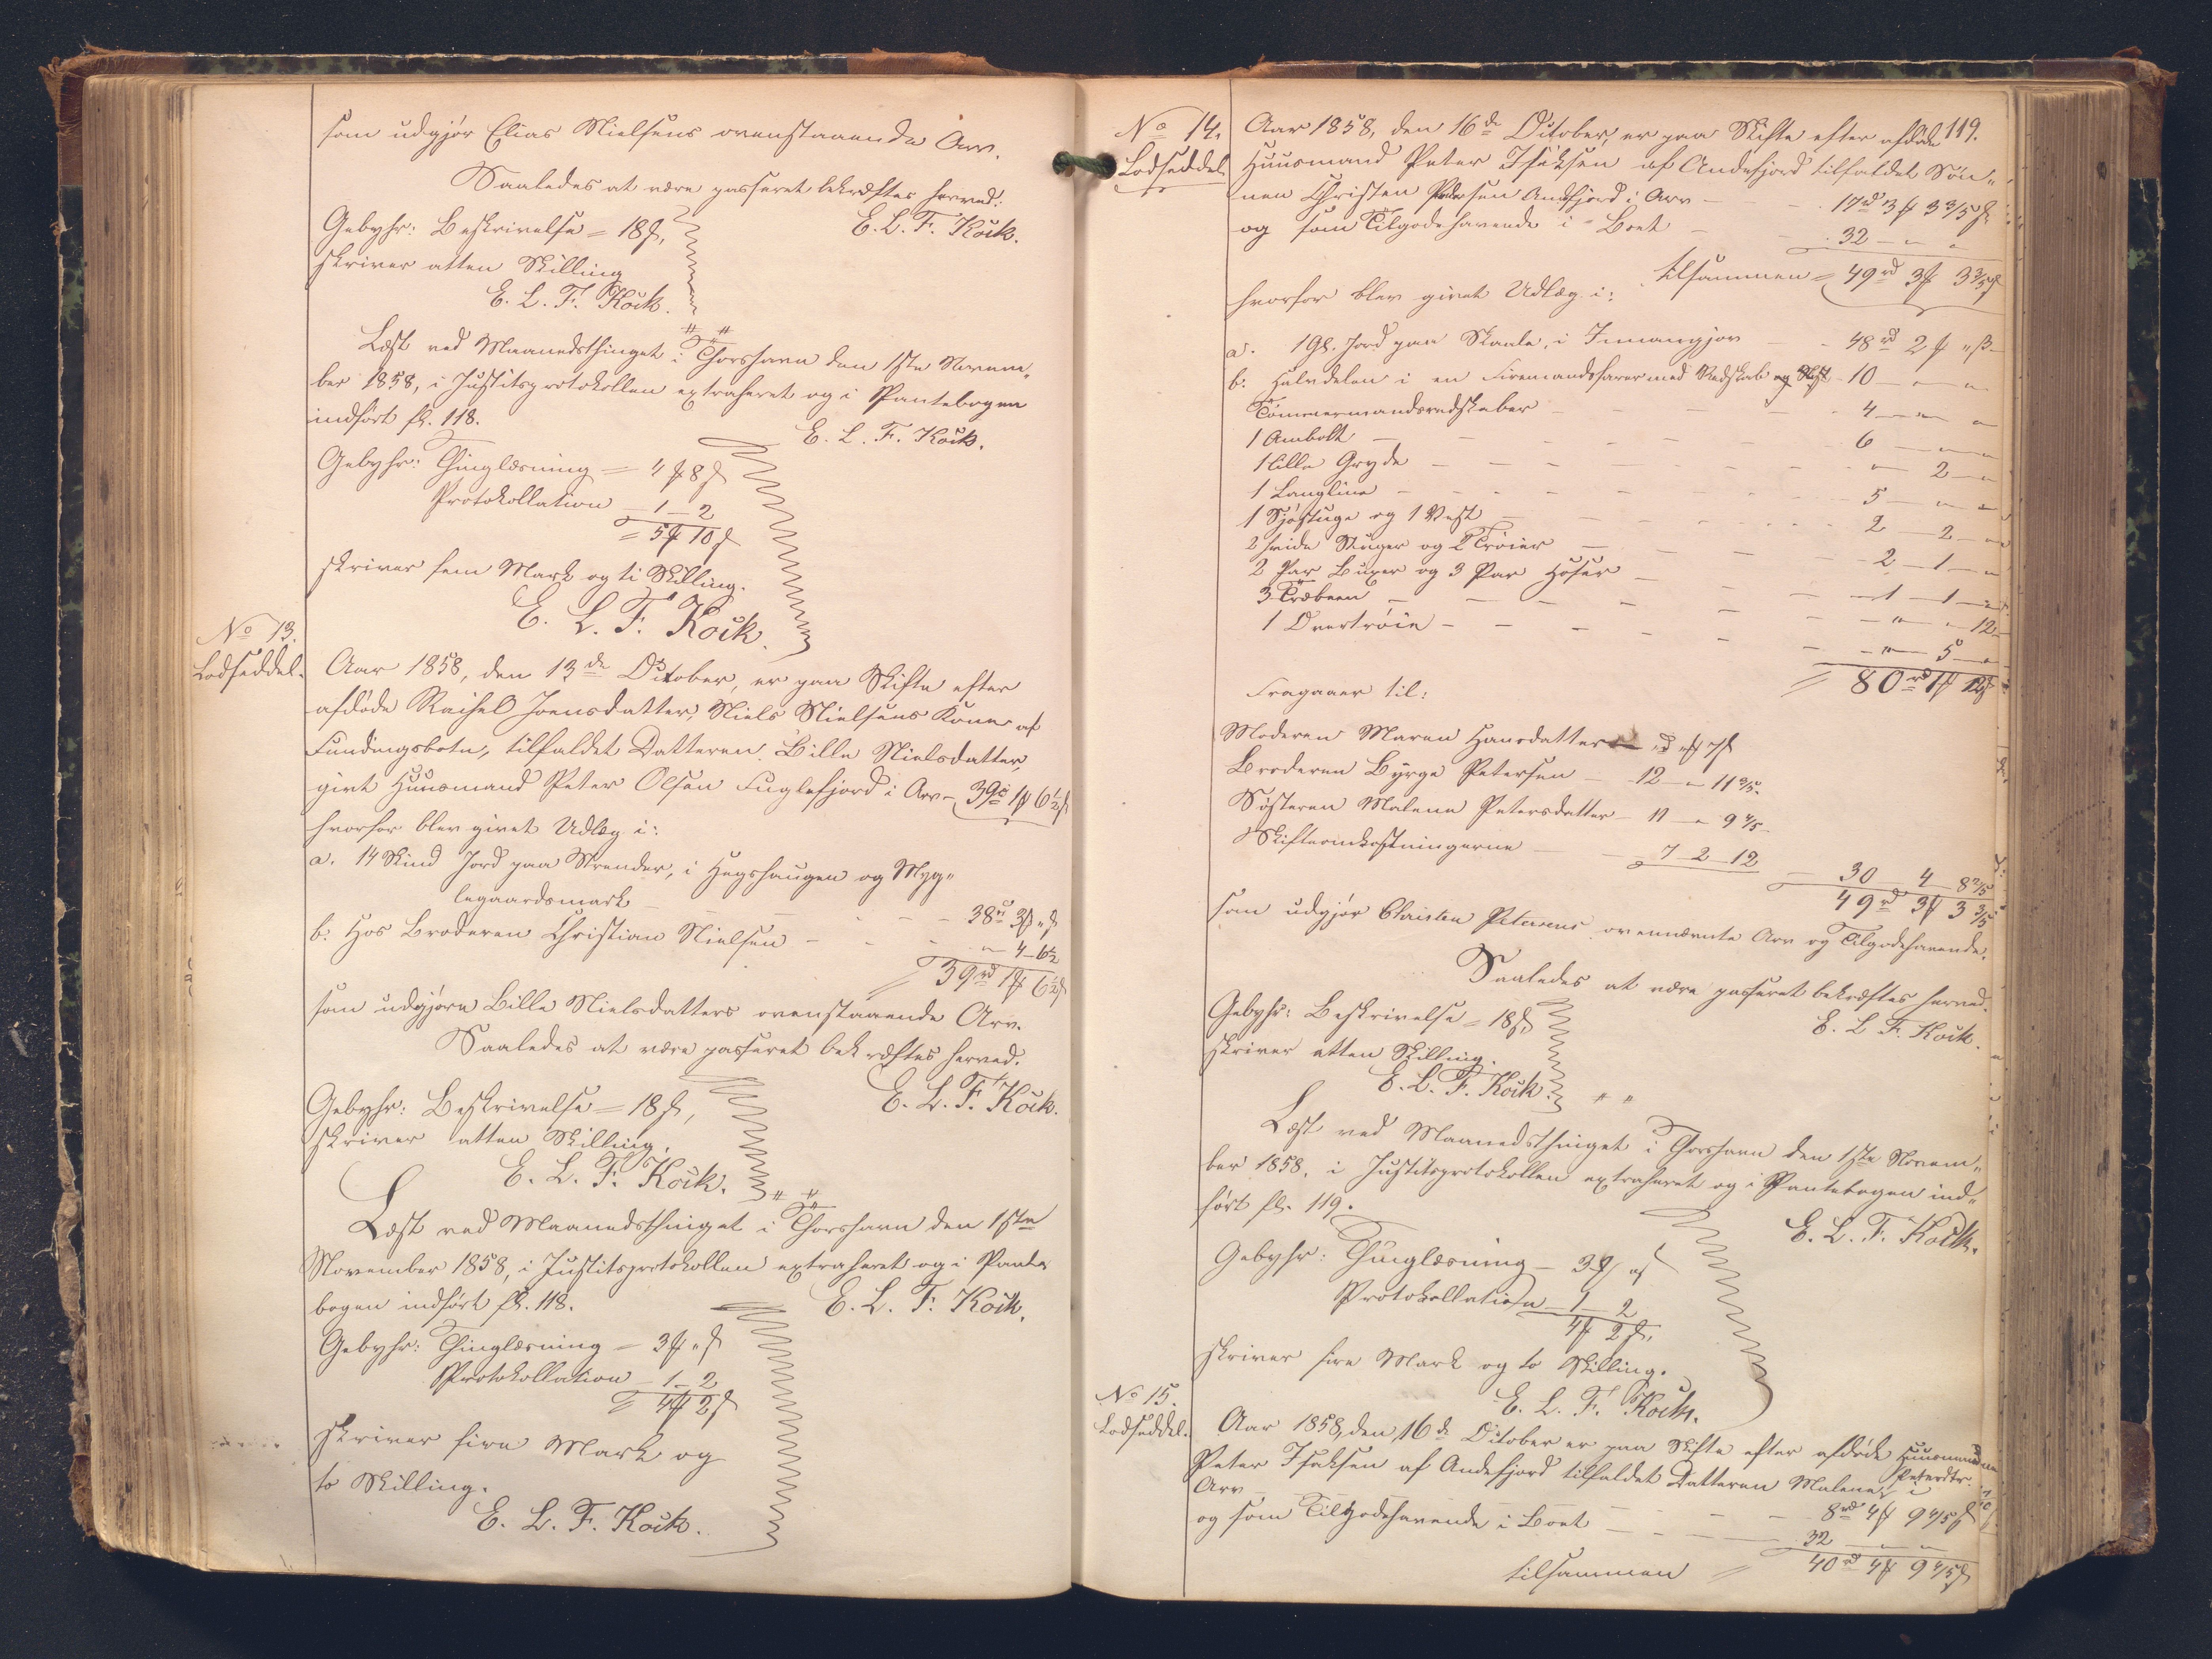 som udgjør Elias Nielsens ovenstaaende Arv.
Saaledes at være passeret bekræftes herved:
E. L. F. Kock.
Gebyhr: Beskrivelse = 18 s,
skriver atten Skilling
E. L. F. Kock.
Læst ved Maanedsthinget i Thorshavn den 1ste Novem„
ber 1858, i Justitsprotokollen extraheret og i Pantebogen
indført fl. 118.
E. L. F. Kock.
Gebyhr: Thinglæsning = 4 m 8 s
Protokollation — 1 — 2
= 5 m 10 s
skriver fem Mark og ti Skilling.
E. L. F. Kock.
No 13.
Lodseddel.
Aar 1858, den 13de October, er paa Skifte efter
afdøde Rachel Joensdatter, Niels Nielsens Kone af
Fundingsbotn, tilfaldet Datteren Bille Nielsdatter,
givt Huusmand Peter Olsen Fuglefjord i Arv — 39 rd 1 m 6 1/2 s
hvorfor blev givet Udlæg i:
a. 14 Skind Jord paa Strender, i Hegshaugen og Myg„
legaardsmark — 38 rd 3 m „ s
b. Hos Broderen Christian Nielsen — „ 4 — 6 1/2
= 39 rd 1 m 6 1/2 s
som udgjøre Bille Nielsdatters ovenstaaende Arv.
Saaledes at være passeret bekræftes herved.
E. L. F. Kock.
Gebyhr: Beskrivelse = 18 s,
skriver atten Skilling.
E. L. F. Kock.
Læst ved Maanedsthinget i Thorshavn den 1ste
November 1858, i Justitsprotokollen extraheret og i Pante
bogen indført fl. 118.
E. L. F. Kock.
Gebyhr: Thinglæsning = 3 m „ s
Protokollation — 1 — 2
= 4 m 2 s
skriver fire Mark og
to Skilling.
E. L. F. Kock.
119.
No 14.
Lodseddel
Aar 1858, den 16de October, er paa Skifte efter afdøde
Huusmand Peter Isaksen af Andefjord tilfaldet Søn„
nen Christen Pedersen Andefjord i Arv — 17 rd 3 m 3 3/5 s
og som Tilgodehavende i Boet — 32 — „ „
tilsammen = 49 rd 3 m 3 3/5 s
hvorfor blev givet Udlæg i:
a. 1 Gl. Jord paa Skaale, i Innangjør — 48 rd 2 m „ s
b. Halvdelen i en Firemandsfarer med Redskab og — 10 — „ „
Tømmermandsredskaber — 4 — „ „
1 Ambolt — 6 — „ „
1 lille Gryde — „ 2 — „
1 Langline — 5 — „ „
1 Sjøstuge og 1 Vest — 2 2 — „
2 hvide Stuger og 2 Trøier — 2 — 1 — „
2 Par Buxer og 3 Par Hoser — 1 — 1 — „
3 Træbeen — „ „ 12
1 Overtrøie — „ 5 — „
= 80 rd 1 m 12 s
Fragaaer til:
Moderen Maren Hansdatter — „ rd „ m 7 s
Broderen Byrge Petersen — 12 — „ 11 3/5
Søsteren Malene Petersdatter — 11 — „ 9 4/5
Skifteomkostningerne — 7 — 2 — 12
— 30 4 8 2/5
49 rd 3 m 3 3/5
som udgjør Christen Petersens ovennævnte Arv og Tilgodehavende.
Saaledes at være passeret bekræftes herved.
E. L. F. Kock.
Gebyhr: Beskrivelse = 18 s,
skriver atten Skilling.
E. L. F. Kock.
Læst ved Maanedsthinget i Thorshavn den 1ste Novem„
ber 1858, i Justitsprotokollen extraheret og i Pantebogen ind„
ført fl. 119.
E. L. F. Kock.
Gebyhr: Thinglæsning — 3 m „ s
Protokollation — 1 — 2
4 m 2 s,
skriver fire Mark og to Skilling.
E. L. F. Kock.
No 15.
Lodseddel.
Aar 1858, den 16de October er paa Skifte efter afdøde Huusmand
Peter Isaksen af Andefjord tilfaldet Datteren Malene Petersdtr. i
Arv — 8 rd 4 m 9 4/5 s
og som Tilgodehavende i Boet — 32 — „ „
tilsammen = 40 rd 4 m 9 4/5 s